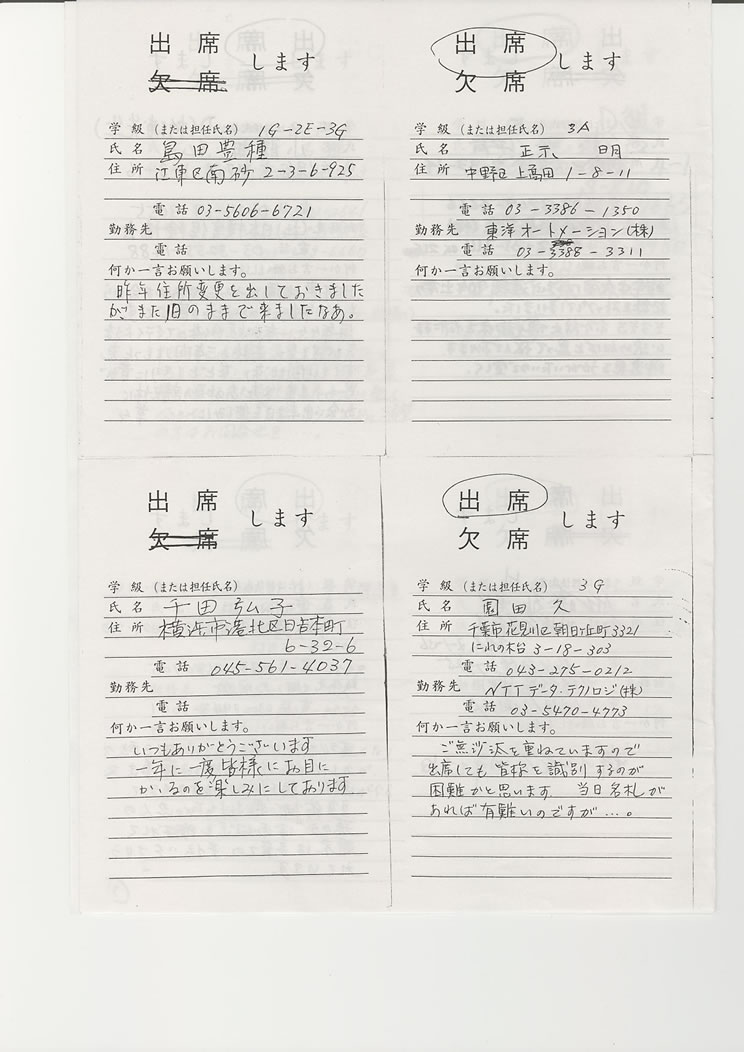 出席
欠席
します
学級（または担任氏名） 1G-2E-3G
氏名 島田豊種
住所 江東区南砂 2-3-6-925
電話 03-5606-6721
勤務先
電話
何か一言お願いします。
昨年住所変更を出しておきました
が また旧のままで来ましたなあ。
出席
欠席
します
学級（または担任氏名） 3A
氏名 正示、 明
住所 中野区上高田 1-8-11
電話 03-3386-1350
勤務先 東洋オートメーション(株)
電話 03-3388-3311
何か一言お願いします。
出席
欠席
します
学級（または担任氏名）
氏名 千田弘子
住所 横浜市港北区日吉本町
6-32-6
電話 045-561-4037
勤務先
電話
何か一言お願いします。
いつもありがとうございます
一年に一度皆様にお目に
かゝるのを楽しみにしております
出席
欠席
します
学級（または担任氏名） 3G
氏名 園田 久
住所 千葉市花見川区朝日ヶ丘町3321
にれの木台 3-18-303
電話 043-275-0212
勤務先 NTTデータ・テクノロジ(株)
電話 03-5470-4773
何か一言お願いします。
ご無沙汰を重ねていますので
出席しても皆様を識別するのが
困難かと思います 当日名札が
あれば有難いのですが…。